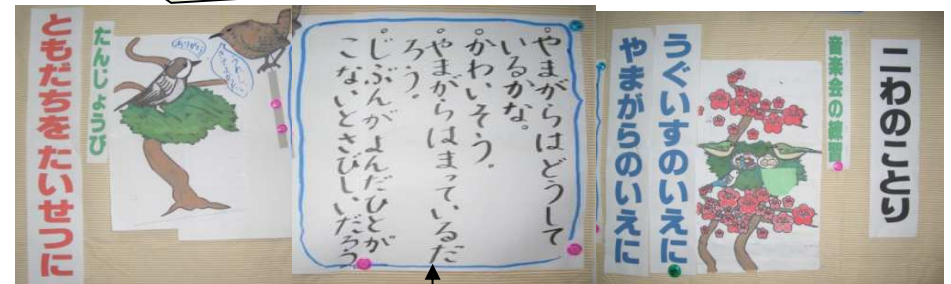 二わのことり
音楽会の練習
うぐいすのいえに
やまがらのいえに
。やまがらはどうして
いるかな。
。かわいそう。
。やまがらはまっているだ
ろう。
。じぶんがよんだひとが
こないとさびしいだろう
たんじょうび
ともだちをたいせつに